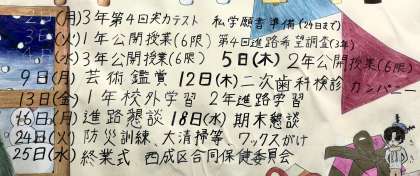 2日(月)3年第4回実力テスト 私学願書準備(24日まで)
3日(火)1年公開授業(6限) 第4回進路希望調査(3年)
4日(水)3年公開授業(6限) 5日(木)2年公開授業(6限)
9日(月)芸術鑑賞 12日(木)二次歯科検診 カンパニー
13日(金)1年校外学習 2年進路学習
16日(月)進路懇談 18日(水)期末懇談
24日(火)防災訓練、大清掃等 ワックスがけ
25日(水)終業式 西成区合同保健委員会